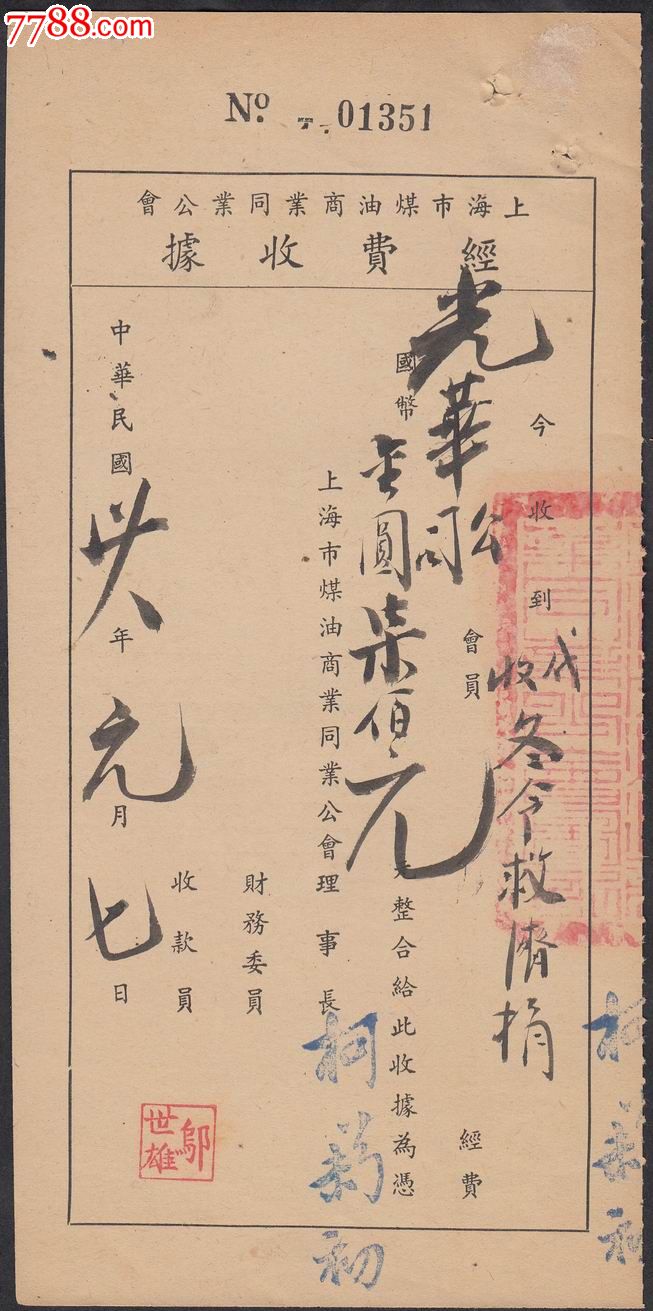 7788.com
No. 01351
上海市煤油商業同業公會
經費收據
今收到
光華公司會員
代收冬令救濟捐
經費
國幣金圓柒佰元整合給此收據為憑
上海市煤油商業同業公會理事長
柯菊初
財務委員
收款員
鄔世雄
中華民國卅八年元月七日